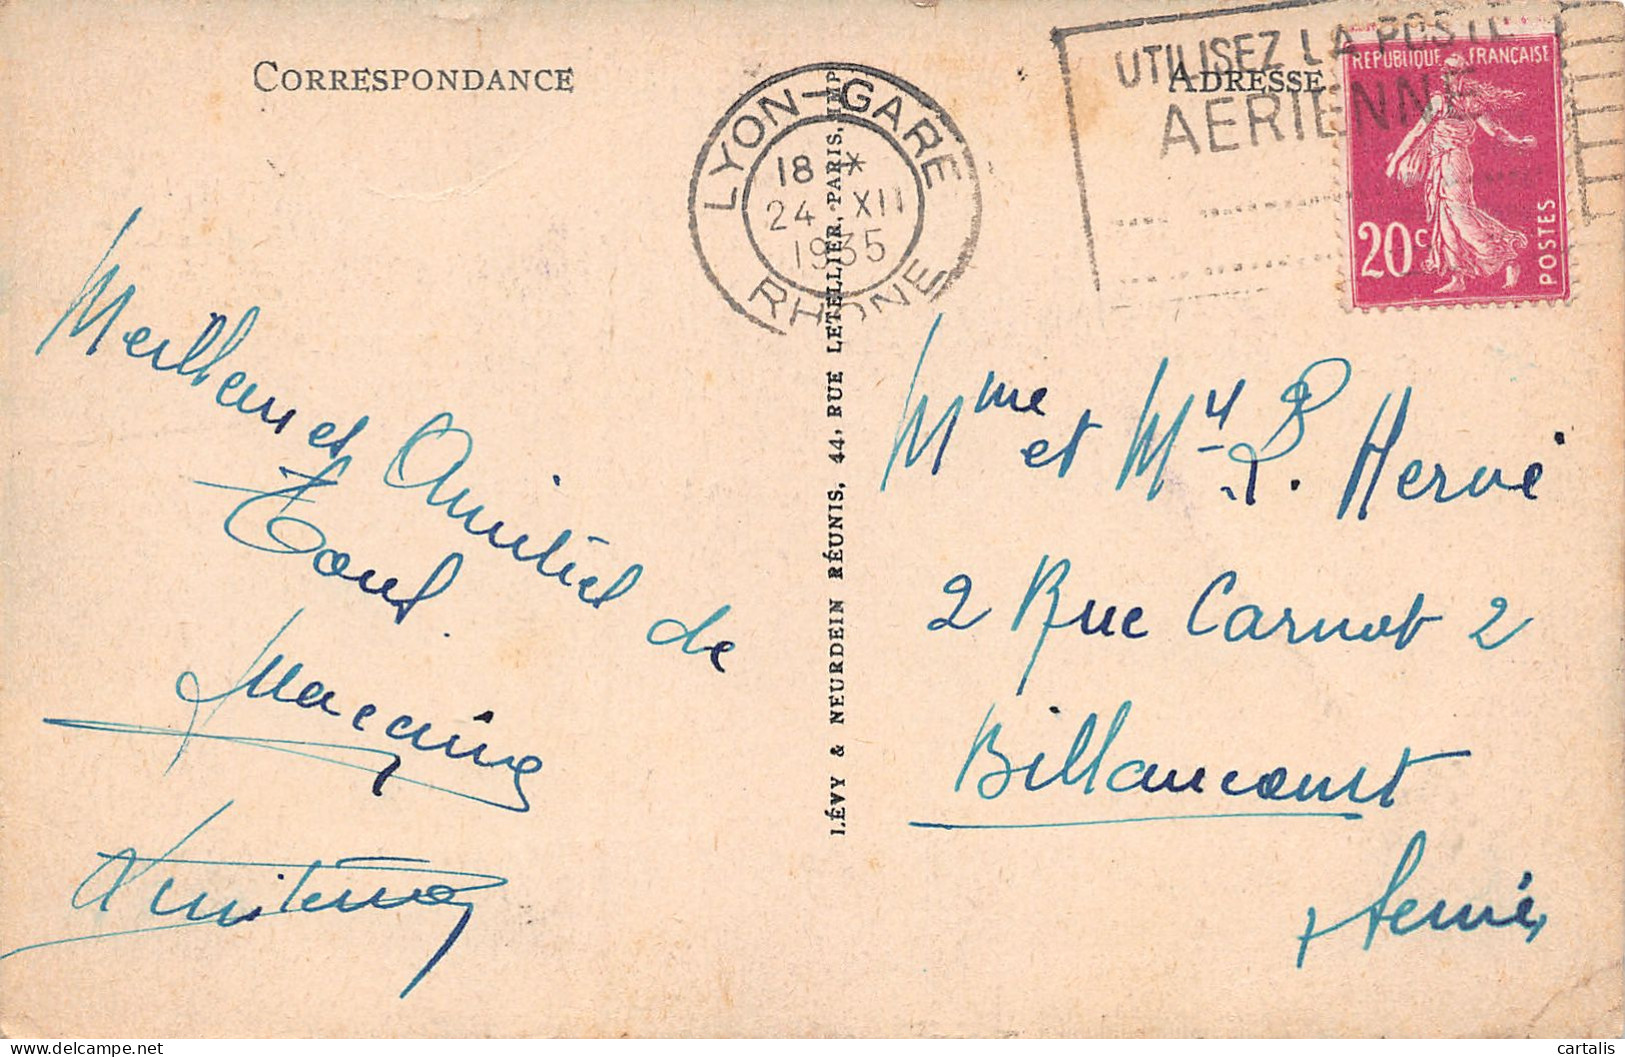 CORRESPONDANCE
ADRESSE
LYON-GARE
18 *
24 XII
1935
RHONE
UTILISEZ LA POSTE
AERIENNE
REPUBLIQUE FRANÇAISE
20c
POSTES
LÉVY & NEURDEIN RÉUNIS, 44, RUE LETELLIER, PARIS, IMP
Meilleures Amitiés de
Tous
Mme et Mr
Hervé
2 Rue Carnot 2
Billancourt
Seine
cartalis